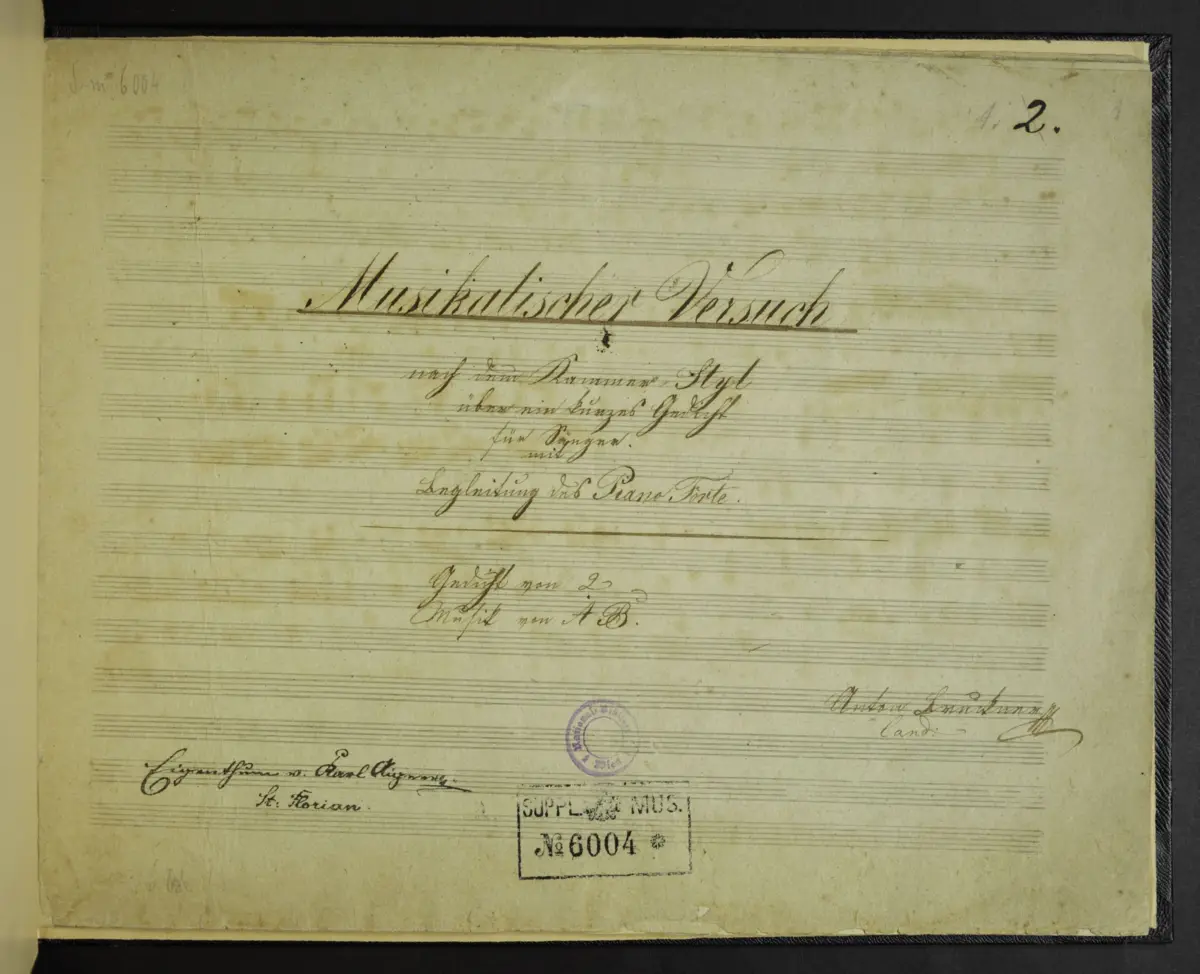 S. m. 6004
1. 2.
Musikalischer Versuch
nach dem Kammer-Styl
über ein kurzes Gedicht
für Sänger.
mit
Begleitung des Piano-Forte.
Gedicht von
Musik von A B.
Anton Bruckner
Cand:
Eigenthum v. Karl Aigner.
St: Florian.
SUPPL. MUS.
№ 6004 *